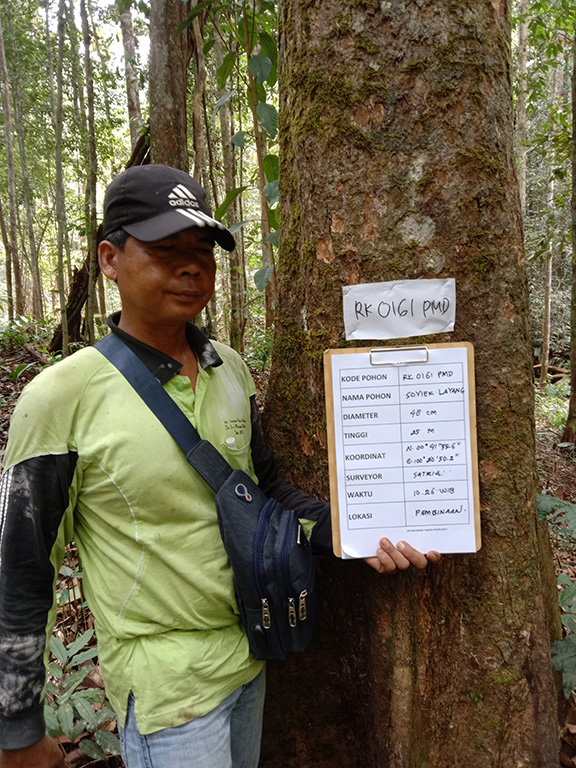 adidas
RK 0161 PMD
KODE POHON RK 0161 PMD
NAMA POHON SOYIEK LAYANG
DIAMETER 48 CM
TINGGI 25 M
KOORDINAT N. 00° 41' 55.6"
E. 100° 20' 50.2"
SURVEYOR SATRIA.
WAKTU 10.26 WIB
LOKASI PEMBINAAN.